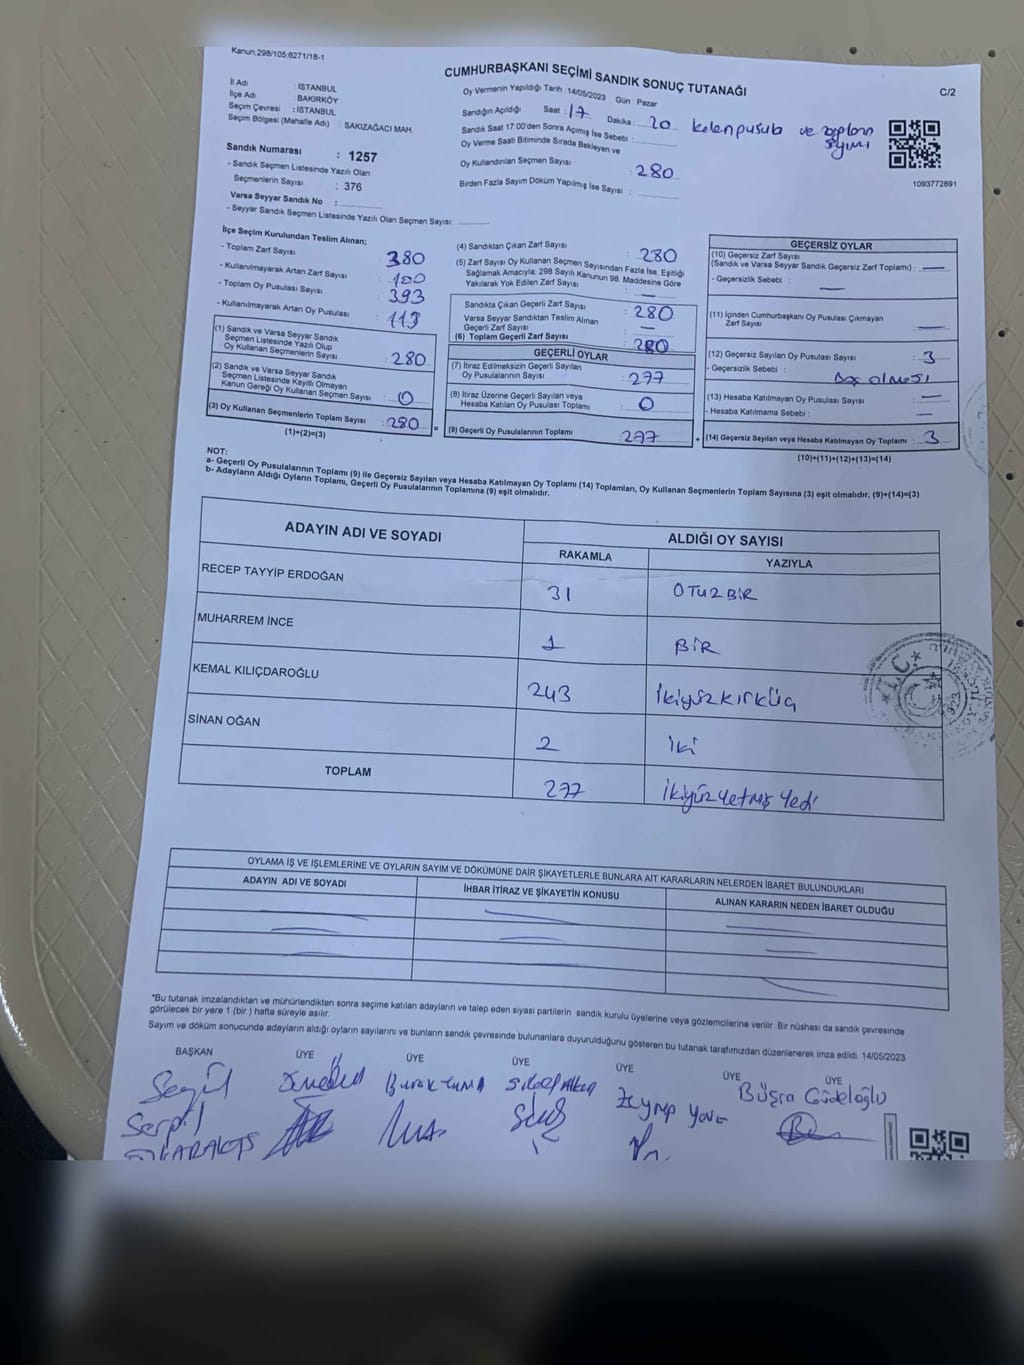 Kanun:298/105;6271/18-1
CUMHURBAŞKANI SEÇİMİ SANDIK SONUÇ TUTANAĞI
C/2
İl Adı : İSTANBUL
İlçe Adı : BAKIRKÖY
Seçim Çevresi : İSTANBUL
Seçim Bölgesi (Mahalle Adı) : SAKIZAĞACI MAH.
Sandık Numarası : 1257
- Sandık Seçmen Listesinde Yazılı Olan
Seçmenlerin Sayısı : 376
Varsa Seyyar Sandık No :
- Seyyar Sandık Seçmen Listesinde Yazılı Olan Seçmen Sayısı:
Oy Vermenin Yapıldığı Tarih : 14/05/2023 Gün : Pazar
Sandığın Açıldığı Saat : 17 Dakika : 20 ve sayımı
Sandık Saat 17:00'den Sonra Açılmış İse Sebebi :
Oy Verme Saati Bitiminde Sırada Bekleyen ve
Oy Kullandırılan Seçmen Sayısı : 280
Birden Fazla Sayım Döküm Yapılmış İse Sayısı :
1093772891
İlçe Seçim Kurulundan Teslim Alınan;
- Toplam Zarf Sayısı : 380
- Kullanılmayarak Artan Zarf Sayısı : 100
- Toplam Oy Pusulası Sayısı : 393
- Kullanılmayarak Artan Oy Pusulası : 113
(1) Sandık ve Varsa Seyyar Sandık
Seçmen Listesinde Yazılı Olup
Oy Kullanan Seçmenlerin Sayısı : 280
(2) Sandık ve Varsa Seyyar Sandık
Seçmen Listesinde Kayıtlı Olmayan
Kanun Gereği Oy Kullanan Seçmen Sayısı : 0
(3) Oy Kullanan Seçmenlerin Toplam Sayısı : 280 =
(1)+(2)=(3)
(4) Sandıktan Çıkan Zarf Sayısı : 280
(5) Zarf Sayısı Oy Kullanan Seçmen Sayısından Fazla İse, Eşitliği
Sağlamak Amacıyla, 298 Sayılı Kanunun 98. Maddesine Göre
Yakılarak Yok Edilen Zarf Sayısı : —
Sandıkta Çıkan Geçerli Zarf Sayısı : 280
Varsa Seyyar Sandıktan Teslim Alınan
Geçerli Zarf Sayısı : —
(6) Toplam Geçerli Zarf Sayısı : 280
GEÇERLİ OYLAR
(7) İtiraz Edilmeksizin Geçerli Sayılan
Oy Pusulalarının Sayısı : 277
(8) İtiraz Üzerine Geçerli Sayılan veya
Hesaba Katılan Oy Pusulası Toplamı : 0
(9) Geçerli Oy Pusulalarının Toplamı : 277 +
GEÇERSİZ OYLAR
(10) Geçersiz Zarf Sayısı
(Sandık ve Varsa Seyyar Sandık Geçersiz Zarf Toplamı) : —
- Geçersizlik Sebebi : —
(11) İçinden Cumhurbaşkanı Oy Pusulası Çıkmayan
Zarf Sayısı : —
(12) Geçersiz Sayılan Oy Pusulası Sayısı : 3
- Geçersizlik Sebebi : Boş olması
(13) Hesaba Katılmayan Oy Pusulası Sayısı : —
- Hesaba Katılmama Sebebi : —
(14) Geçersiz Sayılan veya Hesaba Katılmayan Oy Toplamı : 3
(10)+(11)+(12)+(13)=(14)
NOT:
a- Geçerli Oy Pusulalarının Toplamı (9) ile Geçersiz Sayılan veya Hesaba Katılmayan Oy Toplamı (14) Toplamları, Oy Kullanan Seçmenlerin Toplam Sayısına (3) eşit olmalıdır. (9)+(14)=(3)
b- Adayların Aldığı Oyların Toplamı, Geçerli Oy Pusulalarının Toplamına (9) eşit olmalıdır.
ADAYIN ADI VE SOYADI
ALDIĞI OY SAYISI
RAKAMLA YAZIYLA
RECEP TAYYİP ERDOĞAN 31 OTUZBİR
MUHARREM İNCE 1 BİR
KEMAL KILIÇDAROĞLU 243 İkiyüzkırküç
SİNAN OĞAN 2 İki
TOPLAM 277 İkiyüzyetmiş Yedi
OYLAMA İŞ VE İŞLEMLERİNE VE OYLARIN SAYIM VE DÖKÜMÜNE DAİR ŞİKAYETLERLE BUNLARA AİT KARARLARIN NELERDEN İBARET BULUNDUKLARI
ADAYIN ADI VE SOYADI İHBAR İTİRAZ VE ŞİKAYETİN KONUSU ALINAN KARARIN NEDEN İBARET OLDUĞU
*Bu tutanak imzalandıktan ve mühürlendikten sonra seçime katılan adayların ve talep eden siyasi partilerin sandık kurulu üyelerine veya gözlemcilerine verilir. Bir nüshası da sandık çevresinde
görülecek bir yere 1 (bir) hafta süreyle asılır.
Sayım ve döküm sonucunda adayların aldığı oyların sayılarını ve bunların sandık çevresinde bulunanlara duyurulduğunu gösteren bu tutanak tarafımızdan düzenlenerek imza edildi. 14/05/2023
BAŞKAN ÜYE ÜYE ÜYE ÜYE ÜYE ÜYE
Büşra Güdeloğlu
Serpil
T.C.